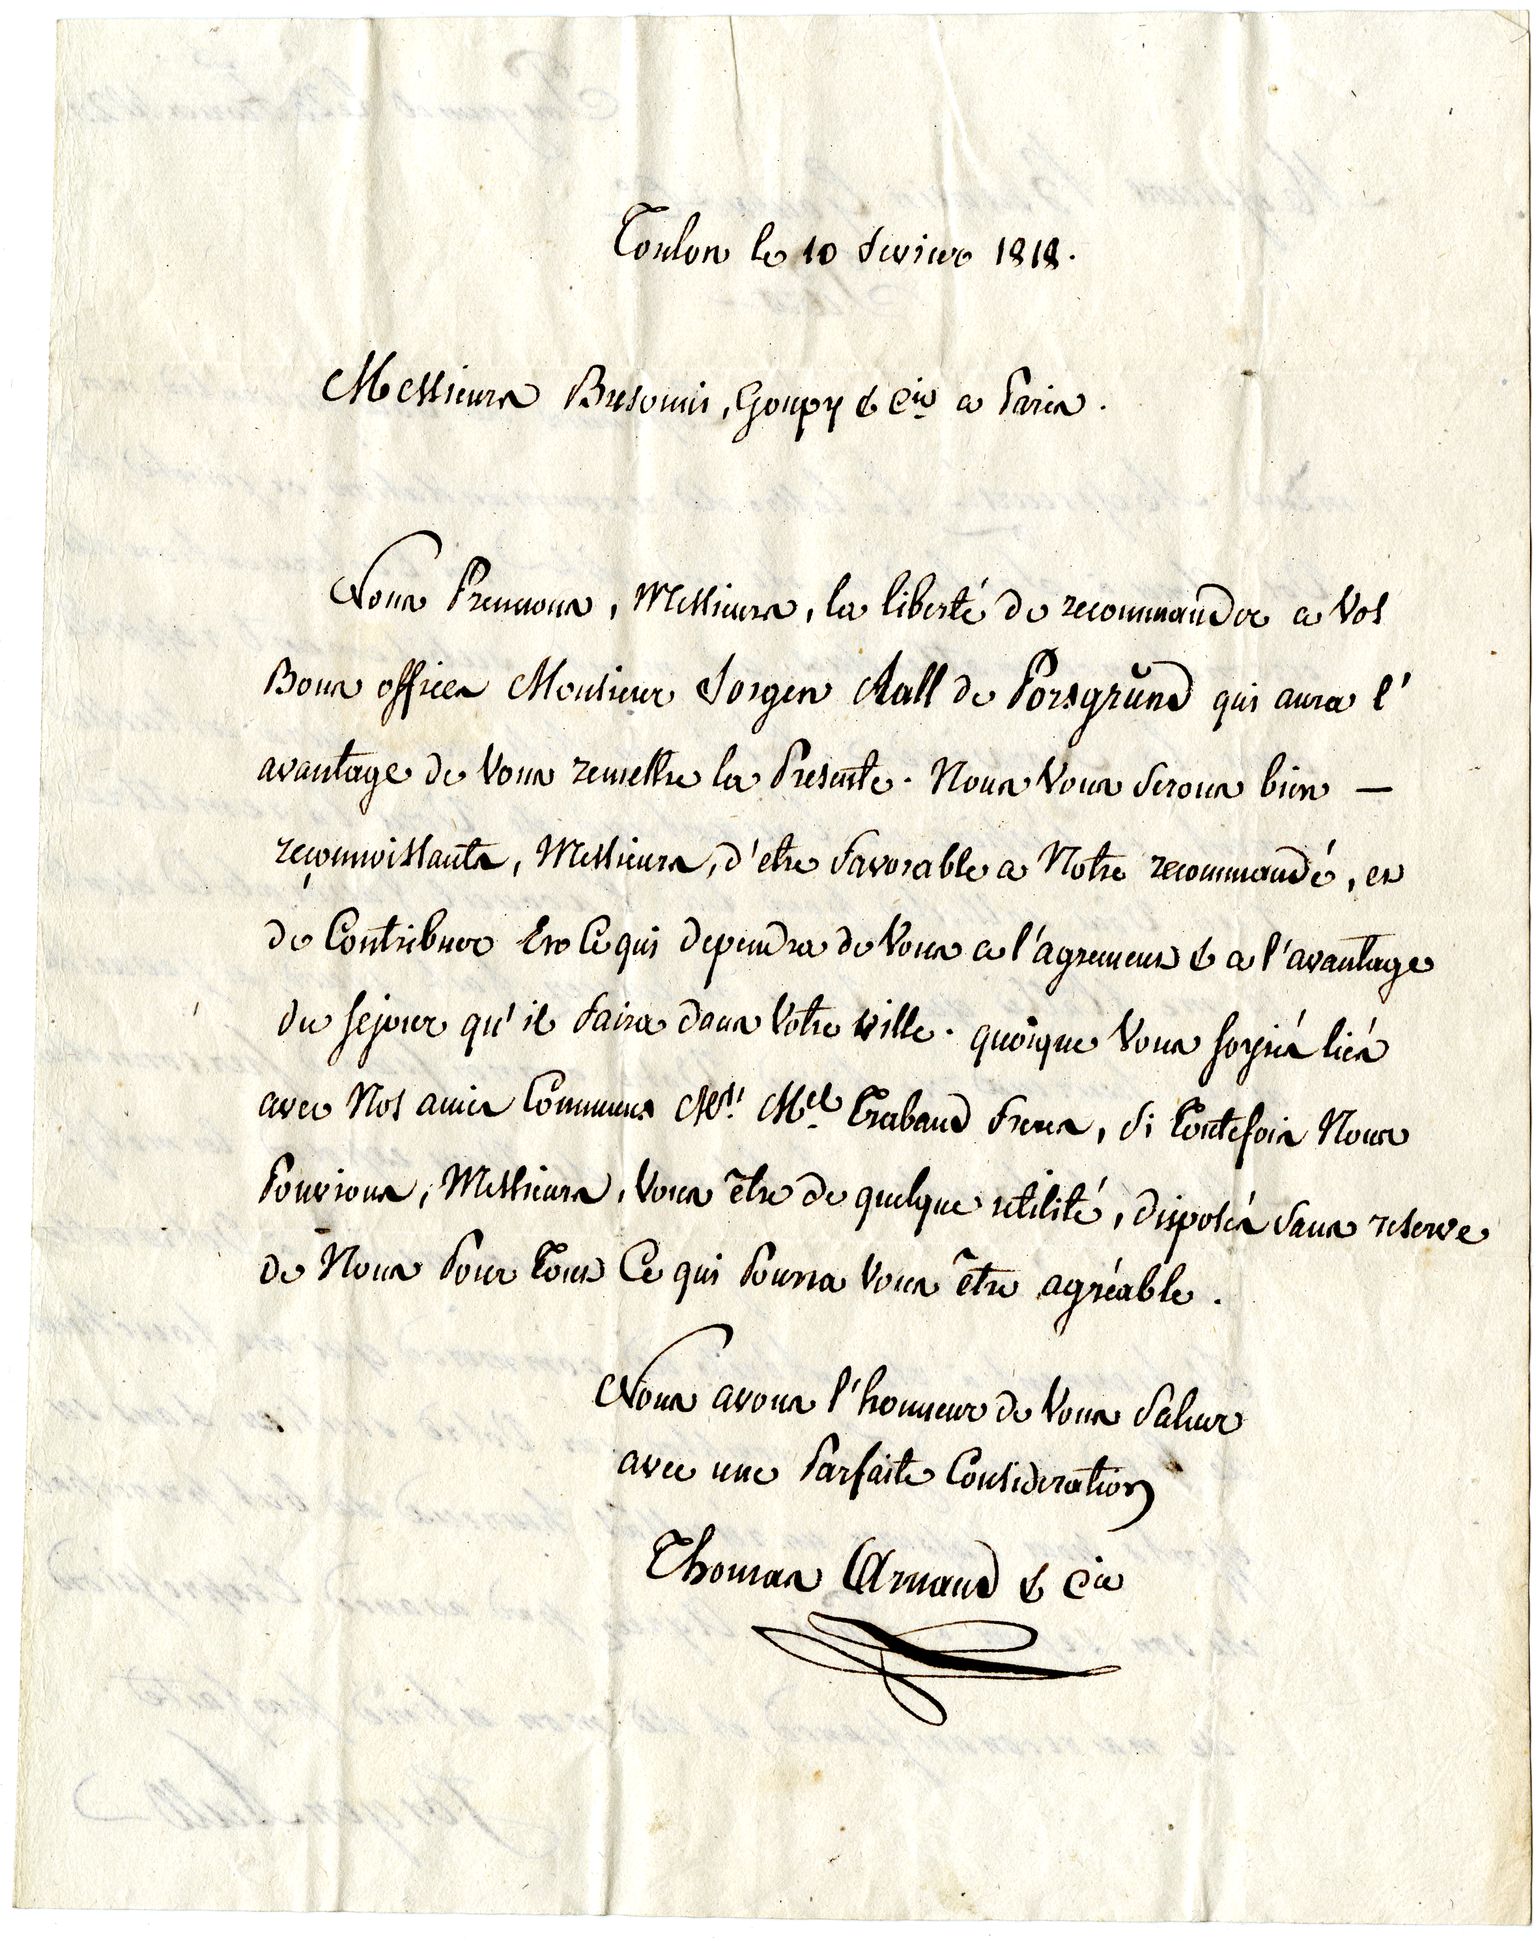 Toulon le 10 fevrier 1818.
Messieurs Busoni, Goupy & Cie a Paris.
Nous Prennons, Messieurs, la liberté de recommander a Vos
Bons offices Monsieur Jorgen Aall de Porsgrŭnd qui aura l'
avantage de Vous remettre la Presente. Nous Vous serons bien —
reconnoissants, Messieurs, d'etre favorable a Notre recommandé, et
de Contribuer En Ce qui dependra de Vous a l'agrement & a l'avantage
du sejour qu'il faira dans Votre ville. quoique Vous soyiés liés
avec Nos amis Communs Mrs. Mel Trabaud freres, si toutefois Nous
Pouvions, Messieurs, Vous être de quelque utilité, disposés sans reserve
de Nous Pour Tout Ce qui Pourra Vous être agréable.
Nous avons l'honneur de Vous saluer
avec une Parfaite Consideration
Thomas Arnaud & Cie